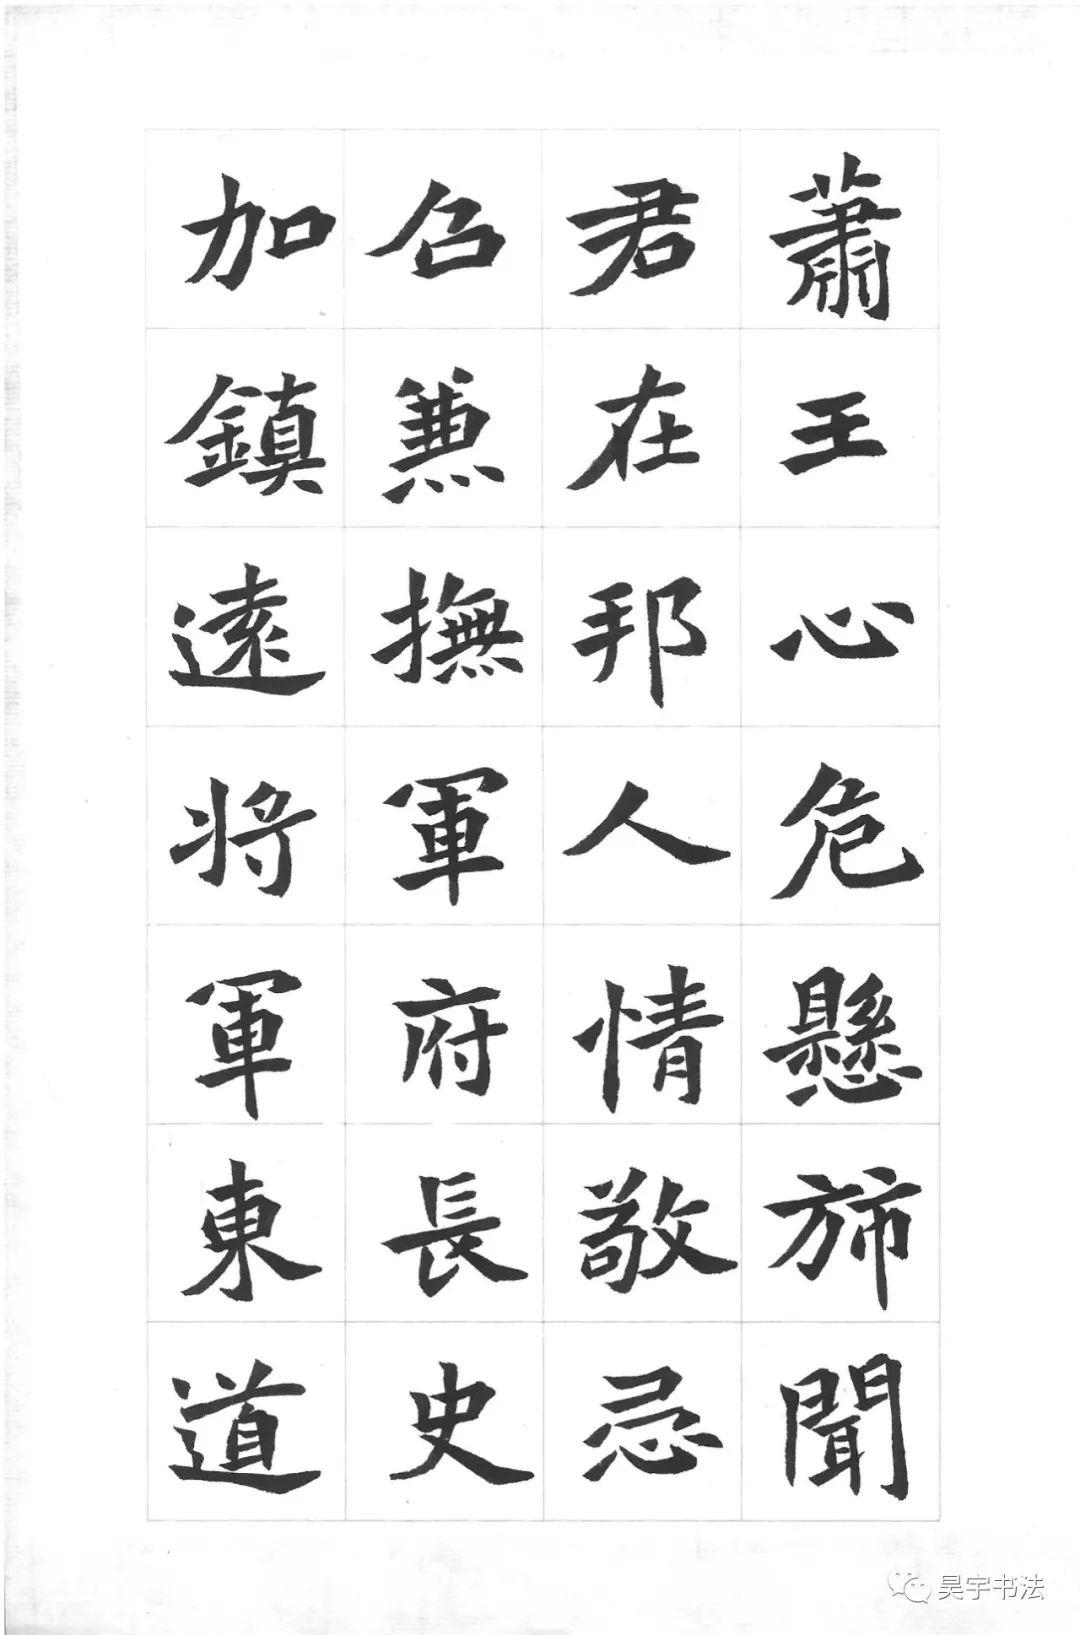 蕭王心危懸旆聞
君在邦人情敬忌
召兼撫軍府長史
加鎮遠将軍東道
昊宇书法